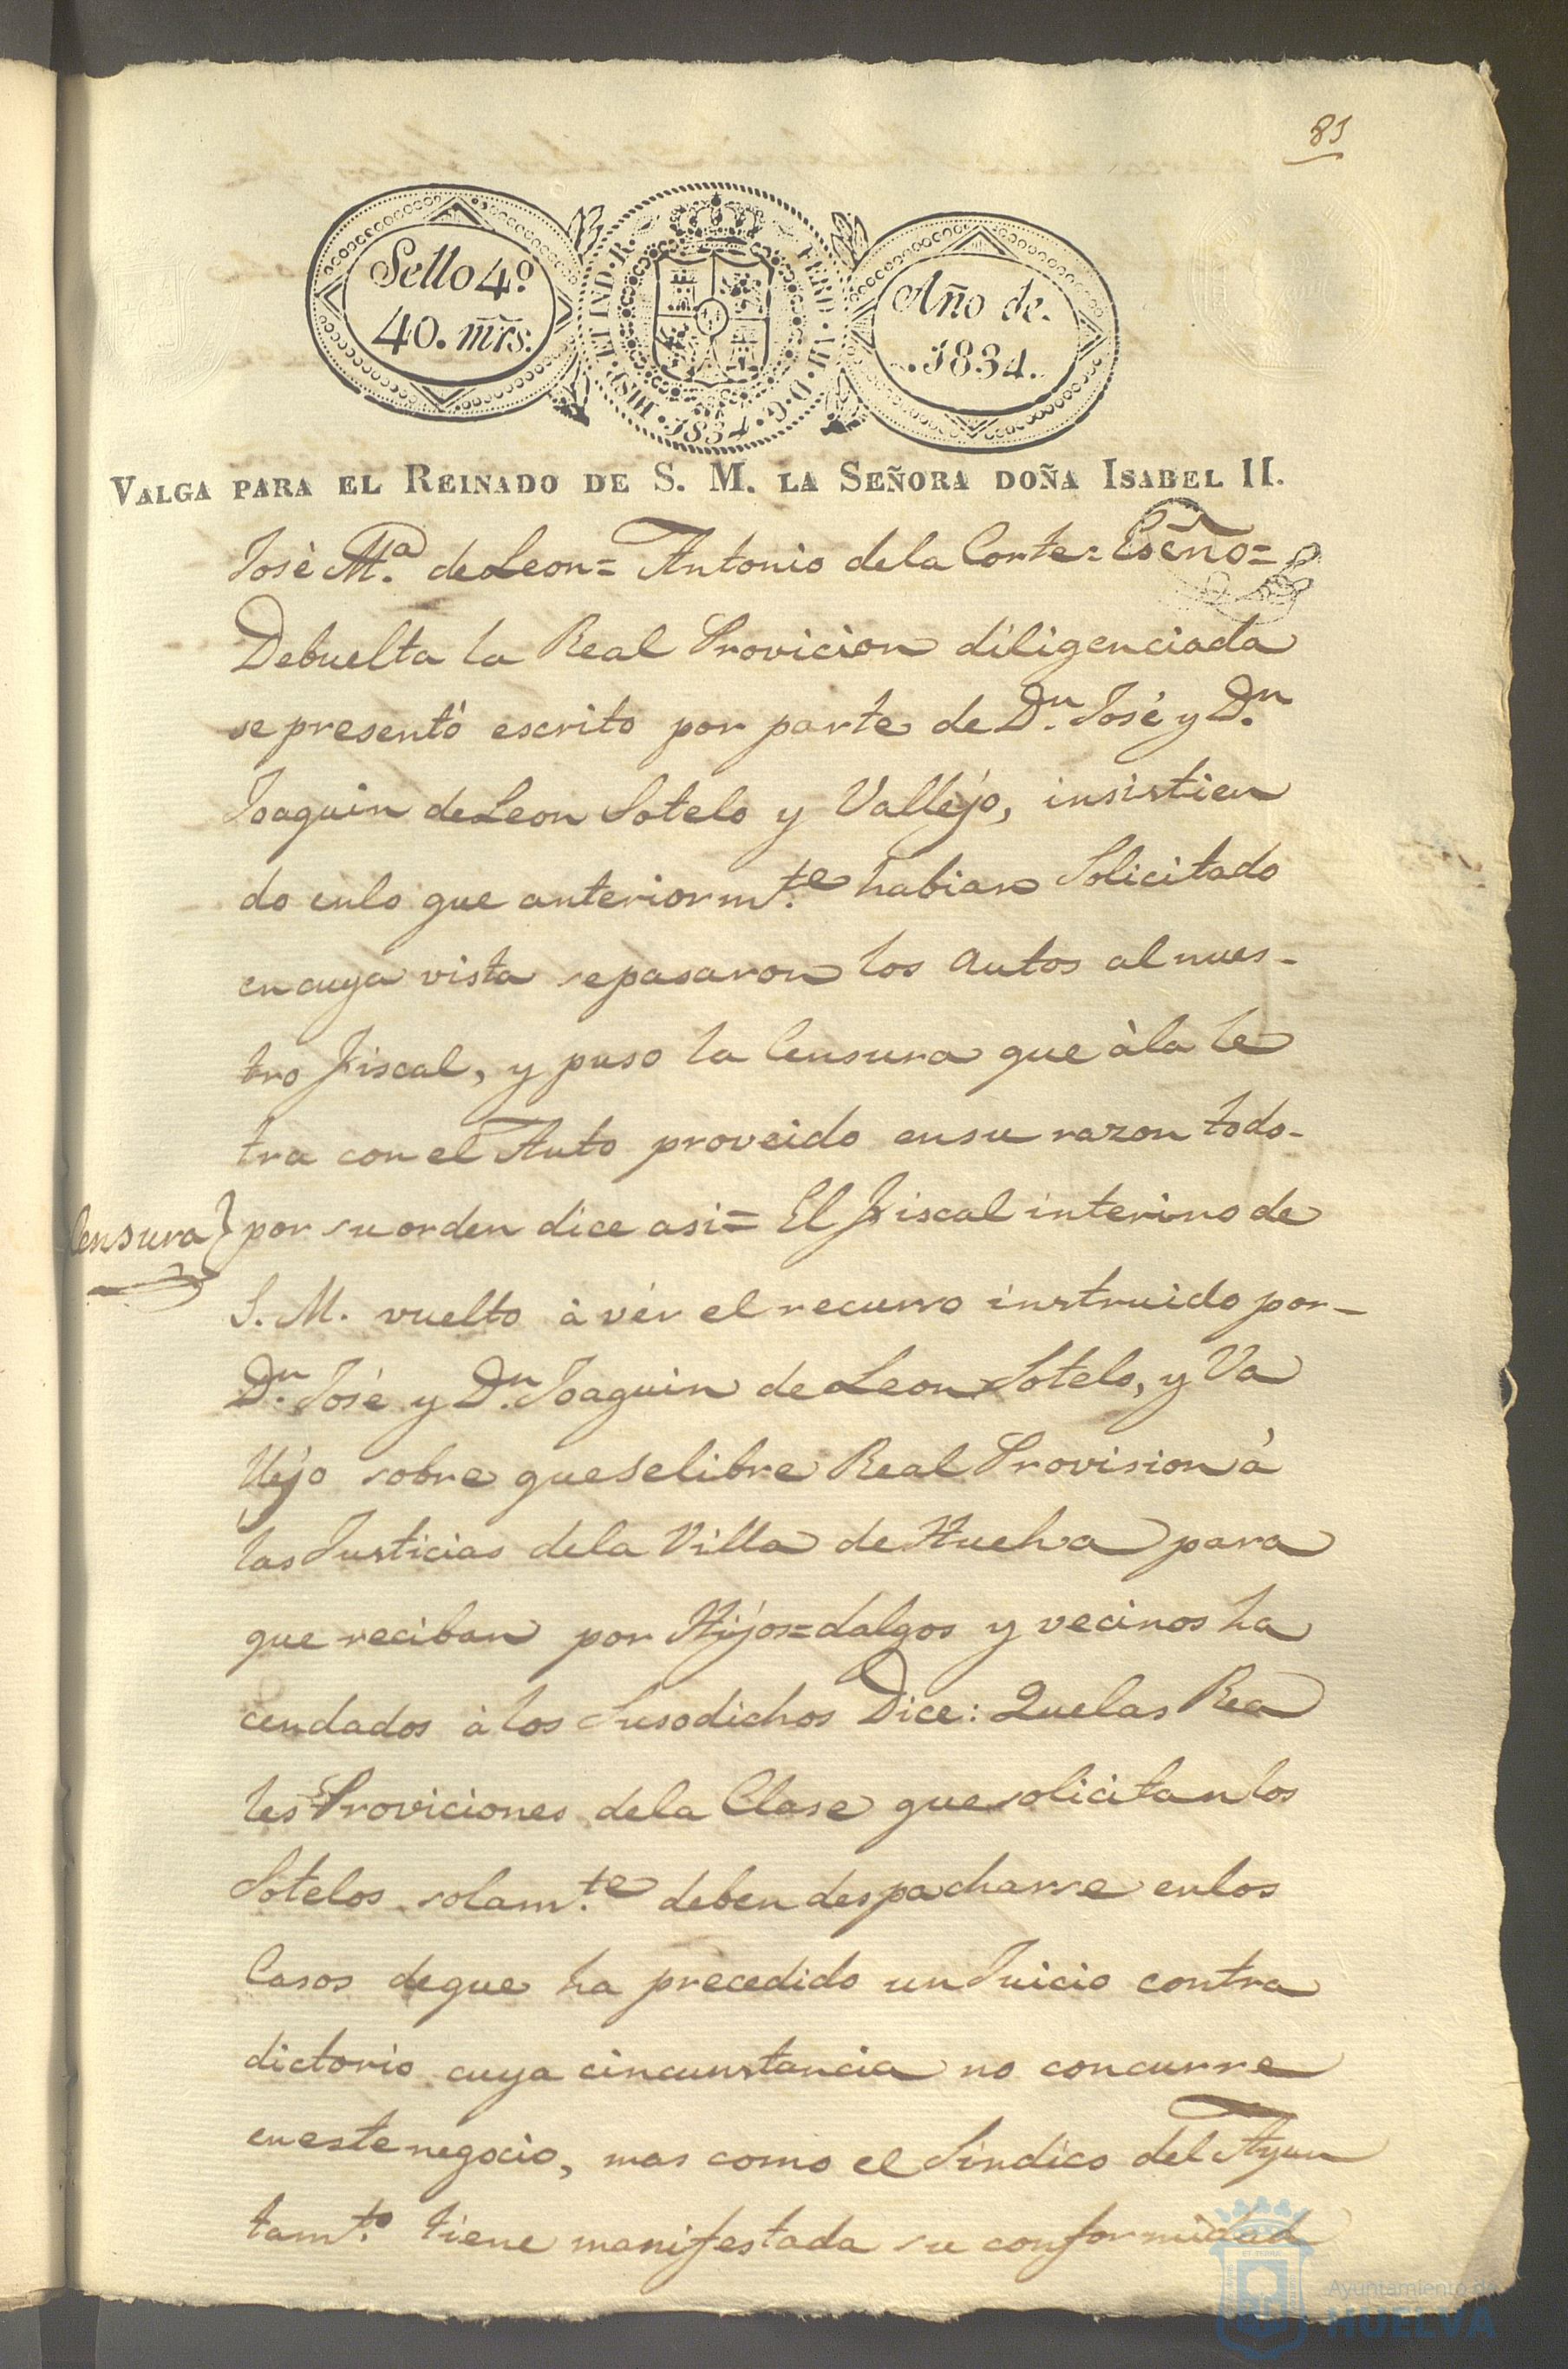 81
Sello 4.º
40. mrs.
HISP. ET IND. R. FERD. VII. D. G. 1834
Año de.
.1834.
VALGA PARA EL REINADO DE S. M. LA SEÑORA DOÑA ISABEL II.
José M.ª de Leon = Antonio dela Corte = Esc̃no =
Debuelta la Real Provicion diligenciada
se presentó escrito por parte de D.n José y D.n
Joaquin de Leon Sotelo y Vallejo, insistien
do enlo que anteriorm.te habian Solicitado
encuya vista sepasaron los autos al nues-
tro Fiscal, y puso la Censura que àla le
tra con el Auto proveido ensu razon todo-
Censura} por su orden dice asi = El Fiscal interino de
S. M. vuelto à vér el recurso instruido por-
D.n José y D.n Joaquin de Leon Sotelo, y Va
llejo sobre queselibre Real Provision à
las Justicias dela Villa de Huelva para
que reciban por Hijos=dalgos y vecinos ha
cendados à los Susodichos Dice: Quelas Rea
les Proviciones dela Clase que solicitan los
Sotelos solam.te deben despacharse enlos
Casos deque ha precedido un Juicio contra
dictorio cuya circunstancia no concurre
eneste negocio, mas como el Sindico del Ayun
tam.to tiene manifestada su conformidad
Ayuntamiento de
HUELVA